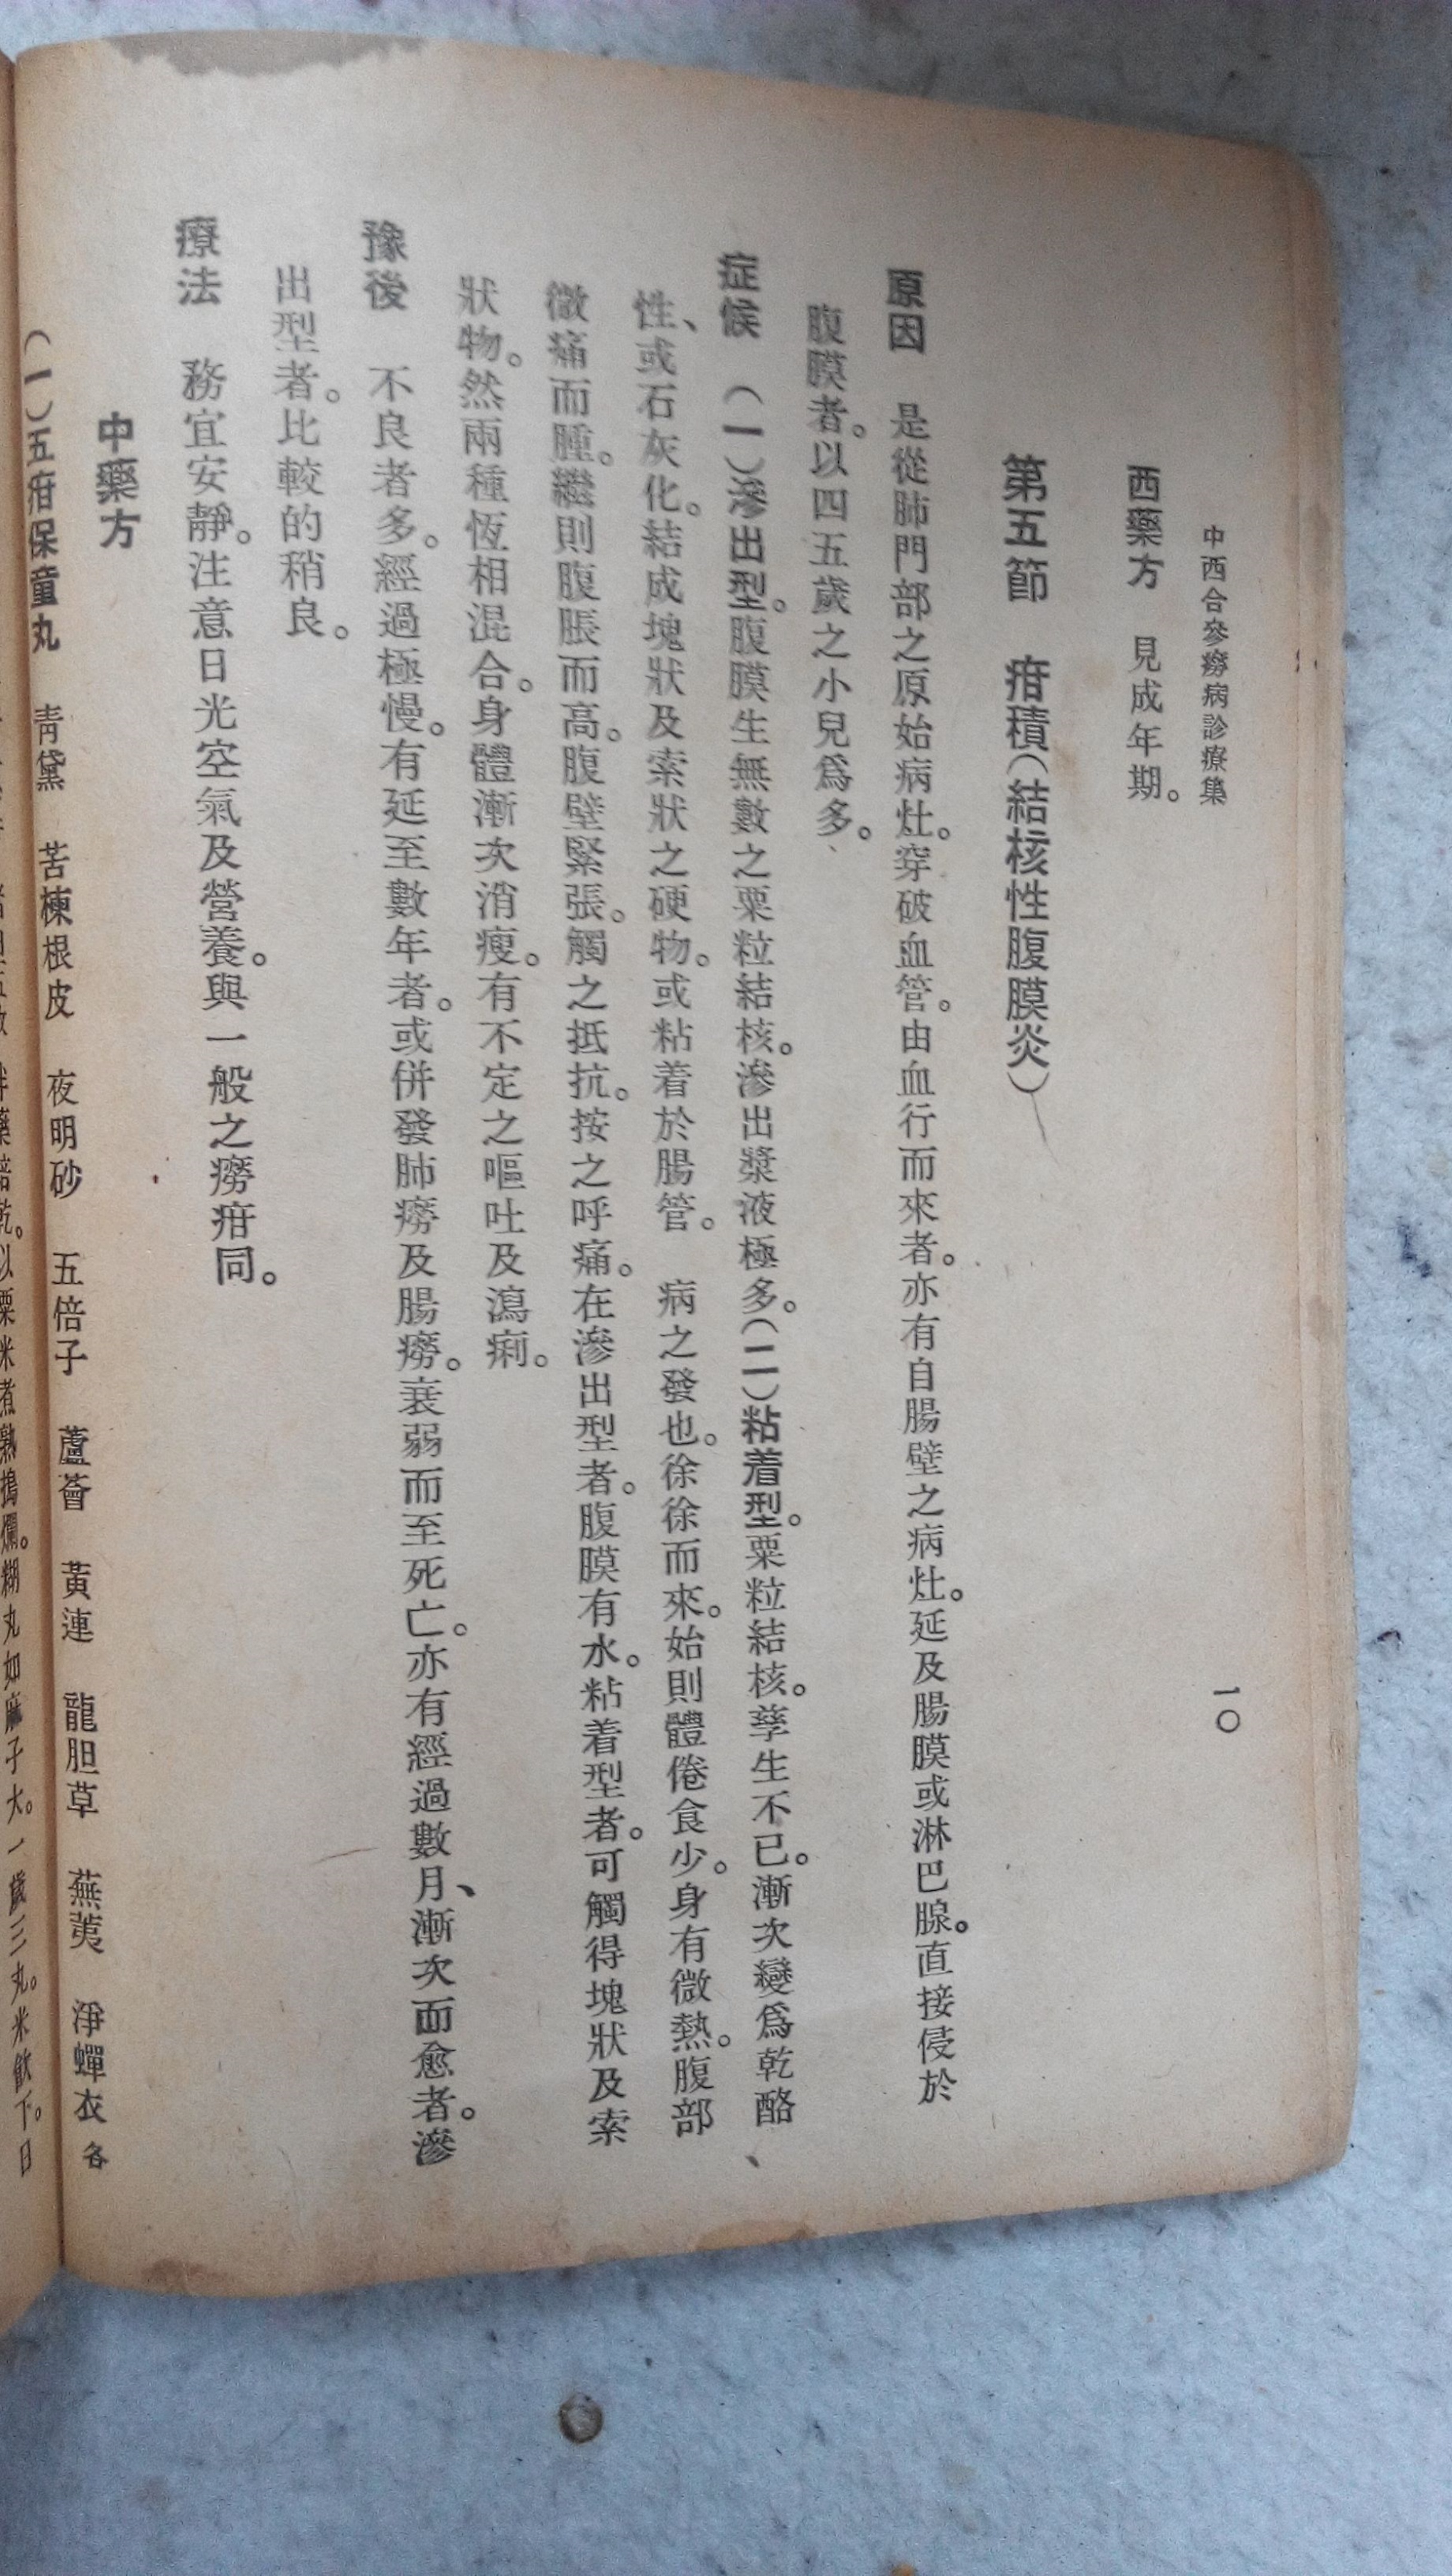 中西合參癆病診療集
一〇
西藥方　見成年期。
第五節　疳積（結核性腹膜炎）
原因　是從肺門部之原始病灶。穿破血管。由血行而來者。亦有自腸壁之病灶。延及腸膜或淋巴腺。直接侵於
腹膜者。以四五歲之小兒爲多。
症候　（一）滲出型。腹膜生無數之粟粒結核。滲出漿液極多。（二）粘着型。粟粒結核。孳生不已。漸次變爲乾酪
性、或石灰化。結成塊狀及索狀之硬物。或粘着於腸管。　病之發也。徐徐而來。始則體倦食少。身有微熱。腹部
微痛而腫。繼則腹脹而高。腹壁緊張。觸之抵抗。按之呼痛。在滲出型者。腹膜有水。粘着型者。可觸得塊狀及索
狀物。然兩種恆相混合。身體漸次消瘦。有不定之嘔吐及瀉痢。
豫後　不良者多。經過極慢。有延至數年者。或併發肺癆及腸癆。衰弱而至死亡。亦有經過數月、漸次而愈者。滲
出型者。比較的稍良。
療法　務宜安靜。注意日光空氣及營養。與一般之癆疳同。
中藥方
（一）五疳保童丸　靑黛　苦楝根皮　夜明砂　五倍子　蘆薈　黃連　龍胆草　蕪荑　淨蟬衣各
藥焙乾。以粟米煮熟搗爛。糊丸如麻子大。一歲三丸。米飲下。日